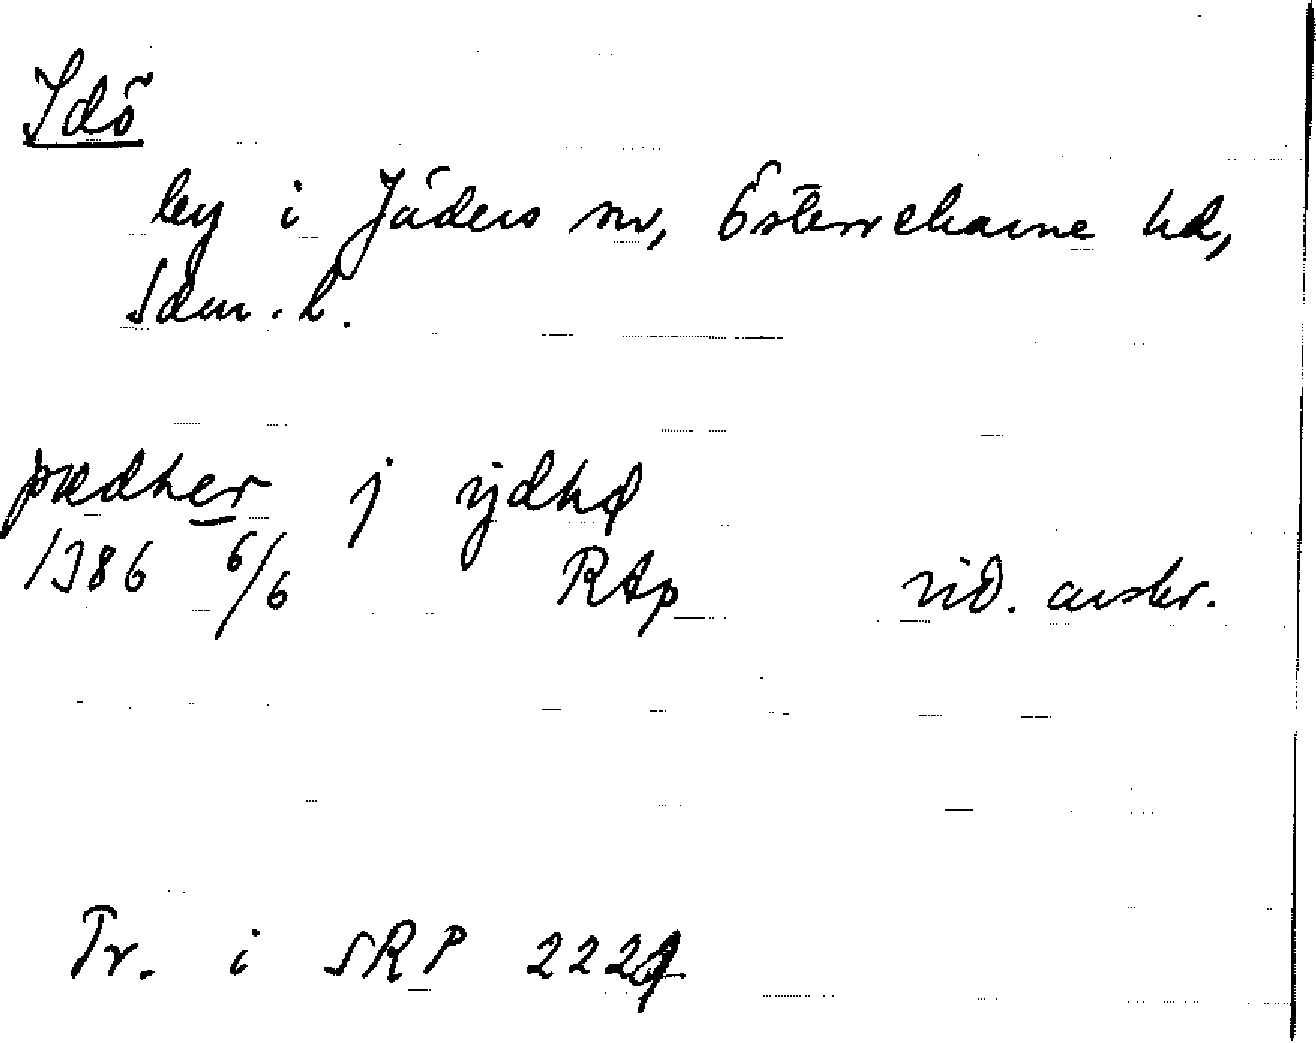 Idö
by i Jäders sn, Österrekarne hd,
Södm. l.
pædher j ijdhø
1386 6/6 RAp vid. avskr.
Tr. i SRP 2229